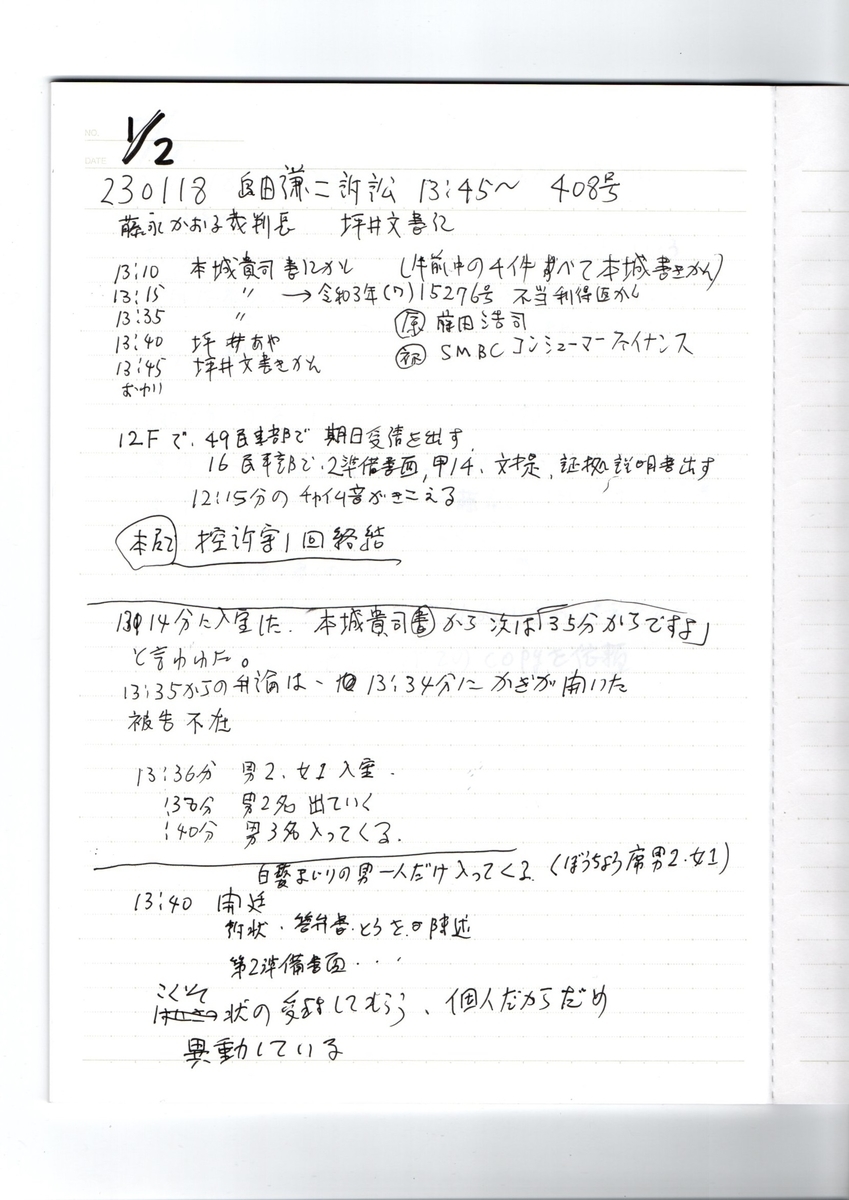 NO.
1/2
DATE
230118 訴訟 13:45〜 408号
藤永かおる裁判長 坪井文書記
13:10 本城貴司書にかん (午前中の4件すべて本城書きかん)
13:15 〃 →令和3年(ワ)15276号 不当利得
13:35 〃 原 藤田浩司
13:40 坪井あや 被 SMBCコンシューマーファイナンス
13:45 坪井文書きかん
おわり
12Fで、49民事部で 期日受請を出す、
16民事部で、2準備書面,甲14、文提,証拠説明書出す
12:15分のチャイム音がきこえる
本日 控訴審1回終結
14分に入室した. 本城貴司書から次は「35分からですよ」
と言われた。
13:35からの弁論は、13:34分にかぎが開いた
被告不在
13:36分 男2、女1入室.
:38分 男2名出ていく
:40分 男3名入ってくる.
白髪まじりの男一人だけ入ってくる (ぼうちょう席男2・女1)
13:40 開廷
訴状・答弁書・陳述
第2準備書面・・・
こくそ
状の受してもらう、個人だからだめ
異動している